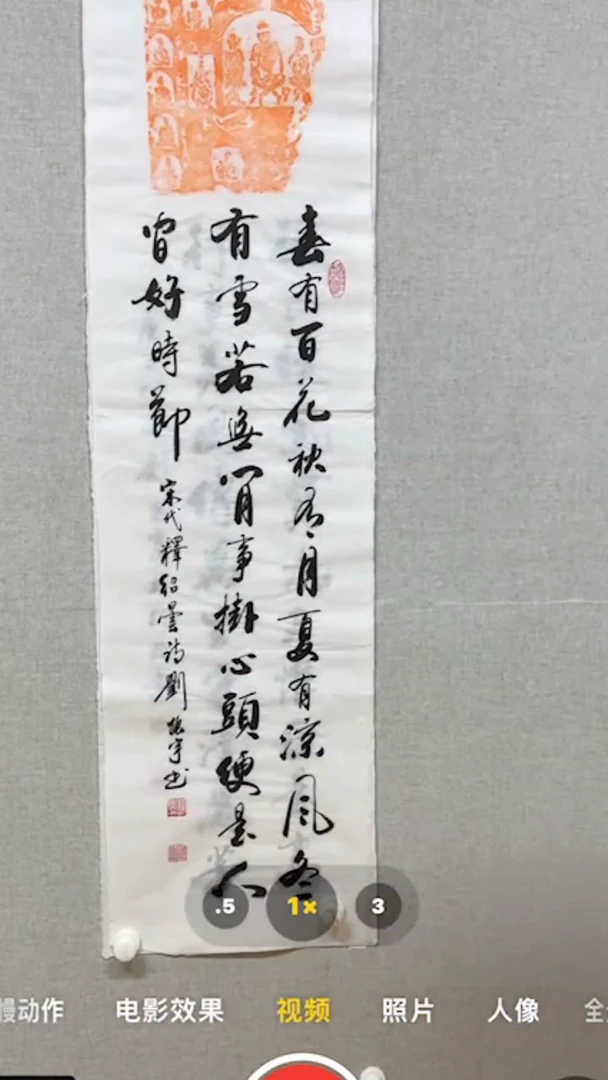 春有百花秋有月夏有涼風冬
有雪若無閒事掛心頭便是人
間好時節
宋代釋紹曇詩劉振宇书
.5 1× 3
慢动作 电影效果 视频 照片 人像 全